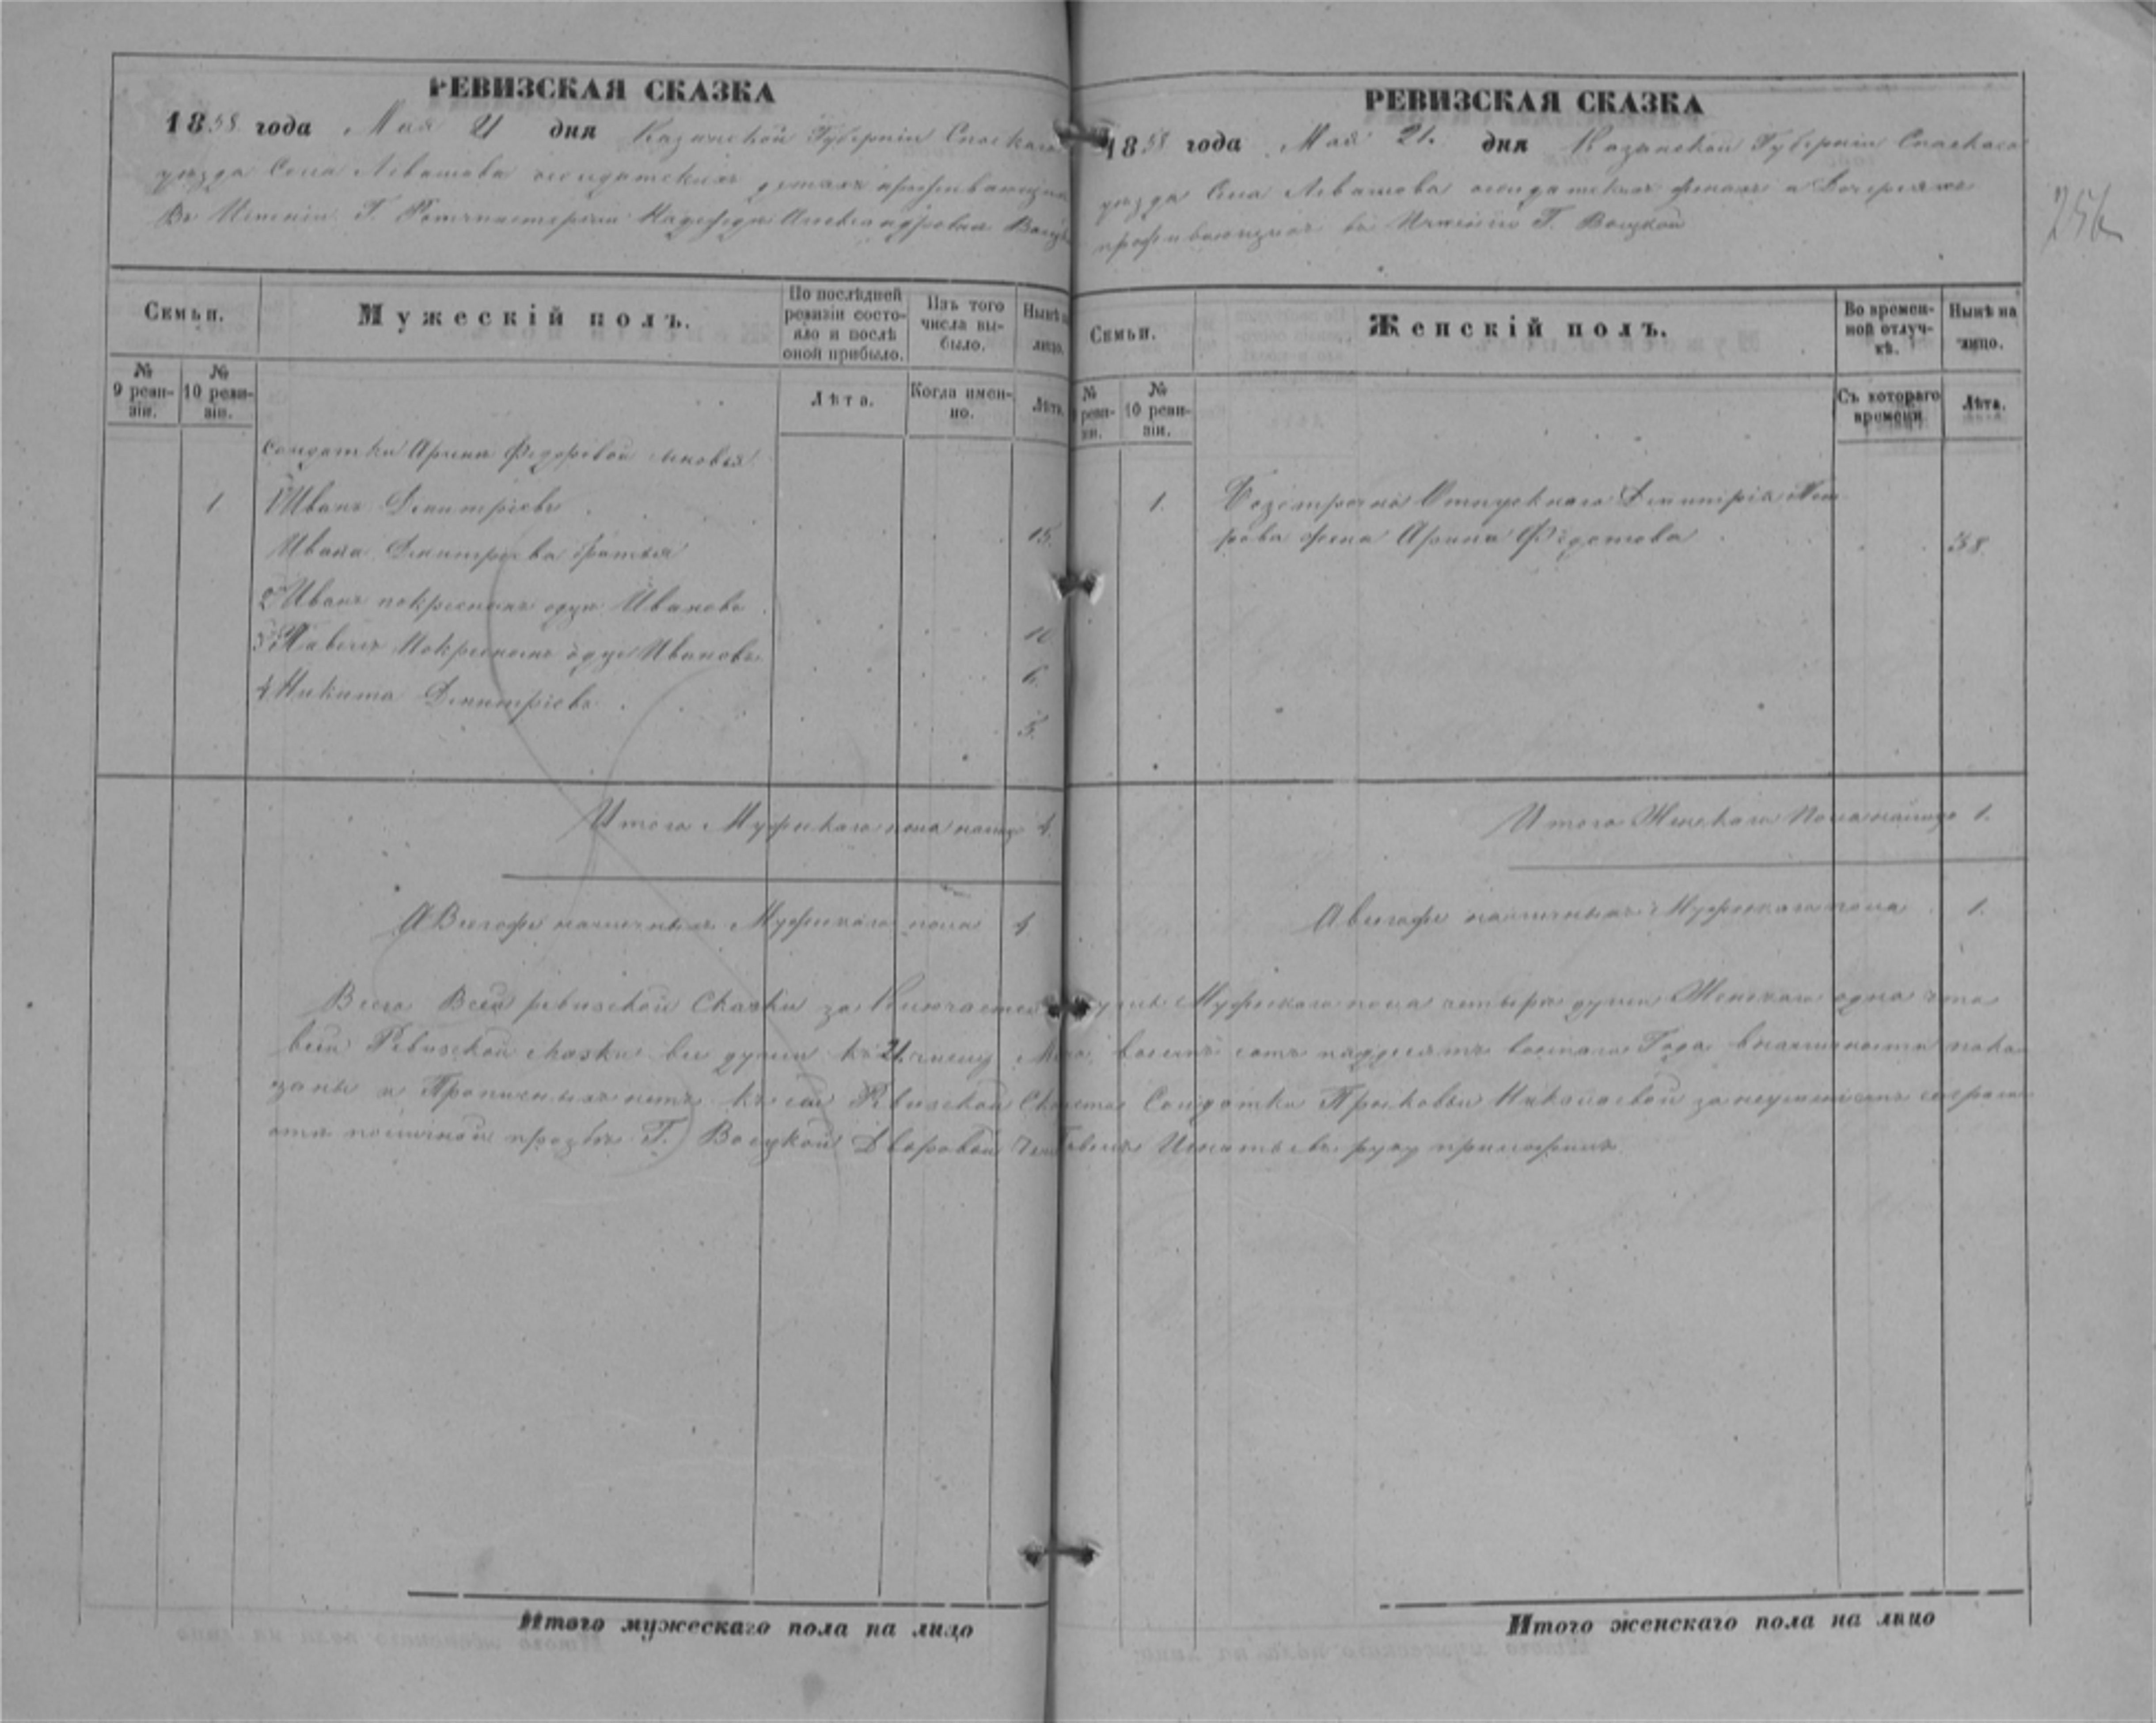 РЕВИЗСКАЯ СКАЗКА
1858 года Мая 21 дня Казанской Губерніи Спаскаго
уезда Села Левашова солдатскихъ детяхъ проживающихъ
Въ Именіи Г. Ротмистерши Надежды Александровны
Семьи.
Мужескій полъ.
По послѣдней ревизіи состояло и послѣ оной прибыло.
Изъ того числа выбыло.
Нынѣ на лицо.
№ 9 ревизіи.
№ 10 ревизіи.
Лѣта.
Когда именно.
Лѣта.
солдатки Арины Федоровой сыновья
1 1 Иванъ Дмитріевъ 15.
Ивана Дмитріева братья
2 Иванъ покрестномъ отце Ивановъ 10
3 Павелъ Покрестномъ отце Ивановъ 6.
4 Никита Дмитріевъ 3.
Итого Мужскаго пола налицо 4.
А Всего наличныхъ Мужескаго пола 4
Итого мужескаго пола на лицо
РЕВИЗСКАЯ СКАЗКА
1858 года Мая 21. дня Казанской Губерніи Спаскаго
уезда Села Левашова солдатскихъ женахъ и Дочеряхъ
проживающихъ въ Именіи Г.
256
Семьи.
Женскій полъ.
Во временной отлучкѣ.
Нынѣ на лицо.
№ ревизіи.
№ 10 ревизіи.
Съ котораго времени
Лѣта.
1. Безсрочно Отпускнаго Дмитрія
жена Арина 38.
Итого Женскаго Пола налицо 1.
А всего наличныхъ Мужескаго пола 1.
Всего Всей ревизской Сказки заключается Мужескаго пола четыре души Женскаго одна что
всей Ревизской сказки все души къ 21 числу Мая восемь сотъ пядесятъ восмаго Года вналичности пока
заны и Прописныхъ нетъ къ сей Ревизской Сказке Солдатки Прасковьи Николаевой за неуменіемъ
Г. Дворовой Игнатьевъ руку приложилъ
Итого женскаго пола на лицо